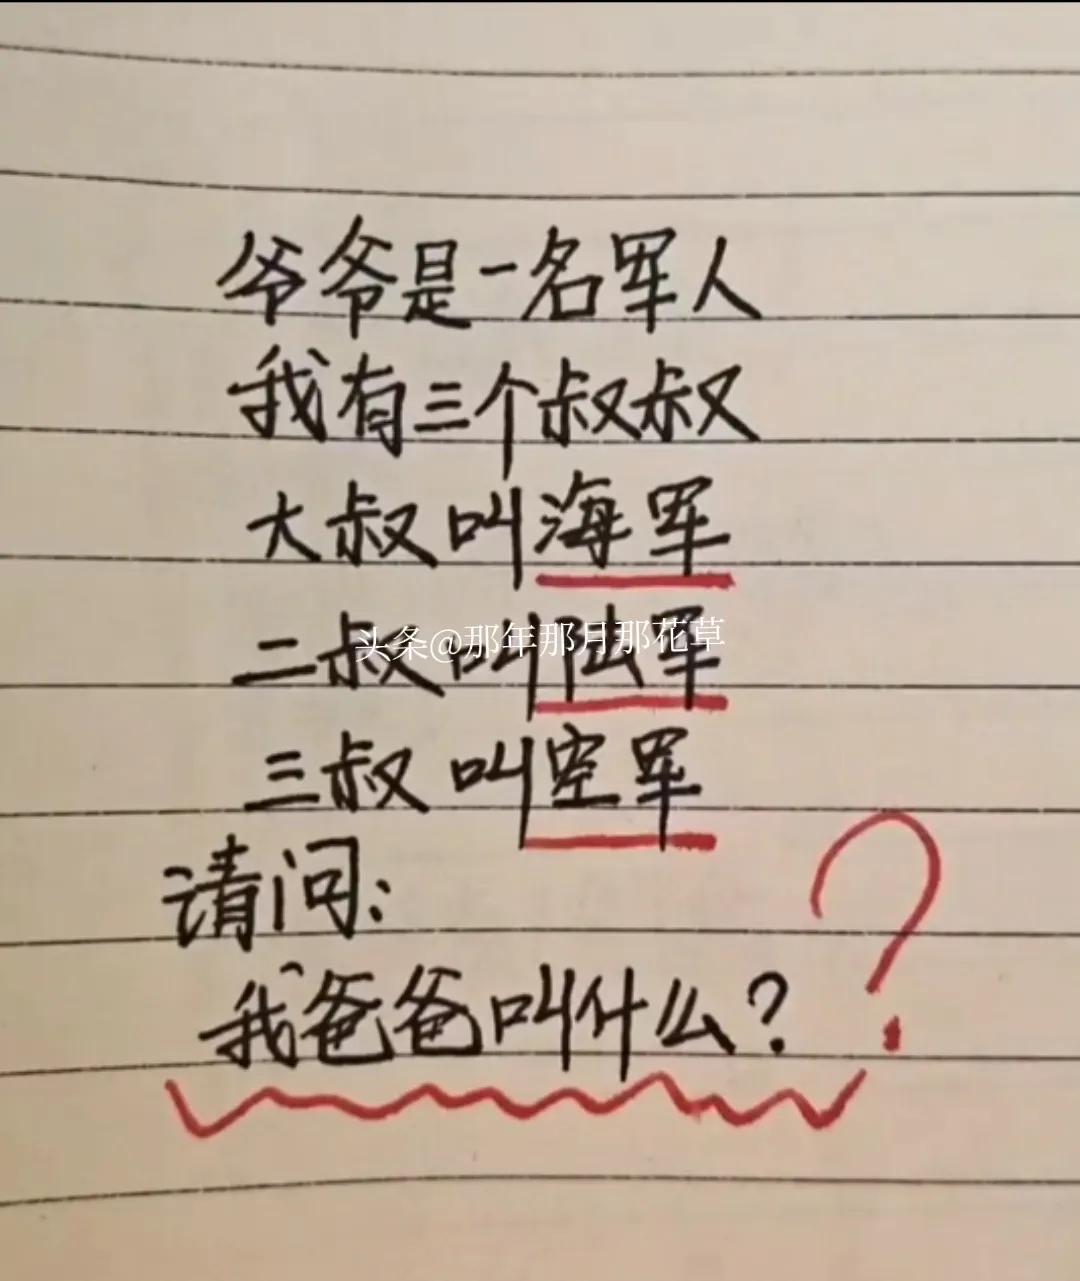 爷爷是一名军人
我有三个叔叔
大叔叫海军
二叔叫陆军
头条@那年那月那花草
三叔叫空军
请问:
我爸爸叫什么?
?